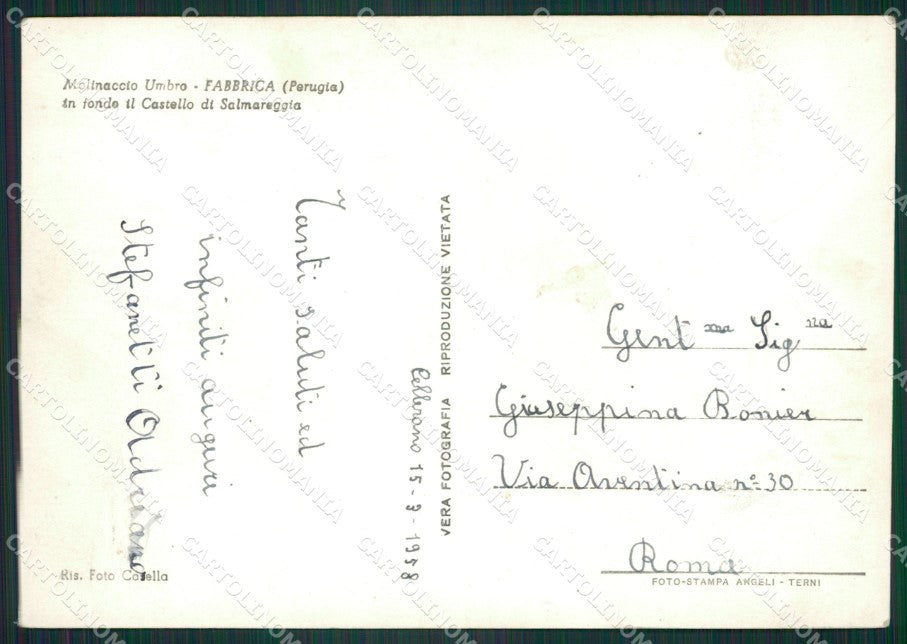 Molinaccio Umbro - FABBRICA (Perugia)
in fondo il Castello di Salmareggia
Tanti saluti ed
infiniti auguri
Stefanetti Adriano
Cellerano 15-3-1958
VERA FOTOGRAFIA RIPRODUZIONE VIETATA
Gent ma Sig na
Giuseppina Bonier
Via Aventina n° 30
Roma
Ris. Foto Casella
FOTO-STAMPA ANGELI - TERNI
CARTOLINOMANIA